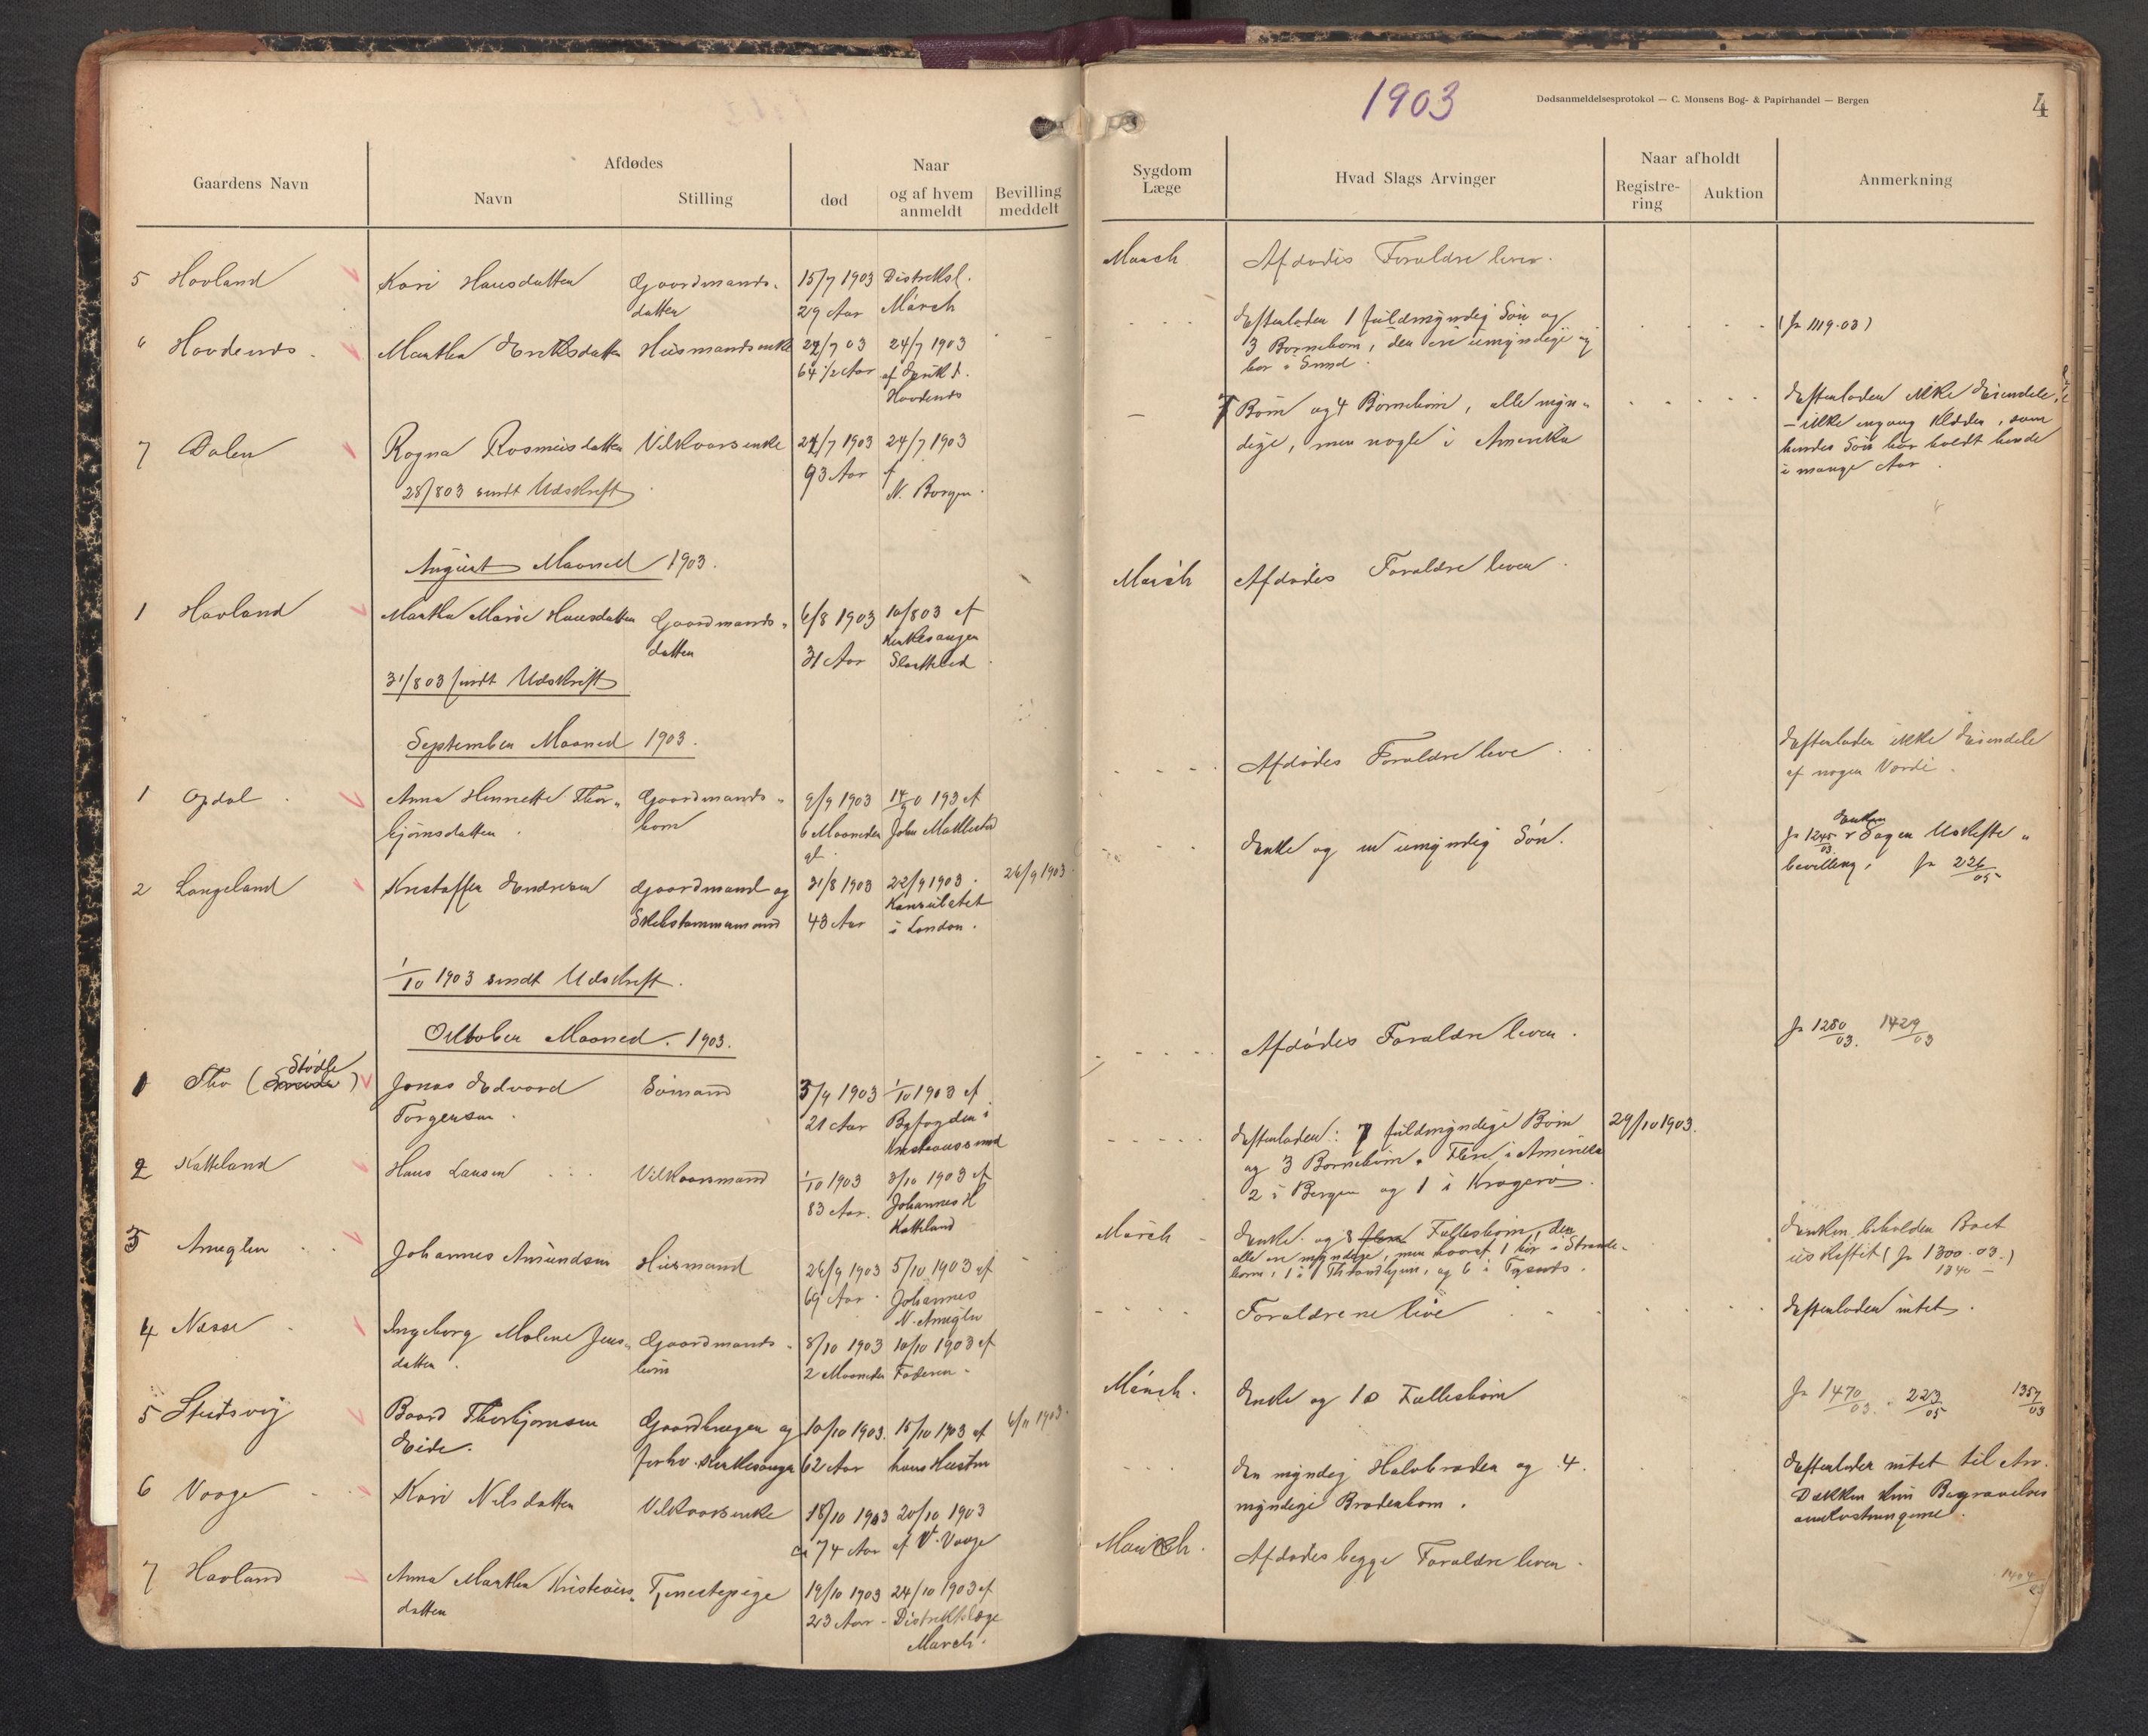 1903
Dødsanmeldelsesprotokol — C. Monsens Bog- & Papirhandel — Bergen
4
Gaardens Navn
Afdødes
Navn
Stilling
Naar
død
og af hvem
anmeldt
Bevilling
meddelt
5 Hovland
Kari Hansdatter
Gaardmands-
datter
15/7 1903
29 Aar
Distriktsl.
March
6 Hovdenes
Martha Eriksdatter
Husmandsenke
22/7 03
64 1/2 Aar
24/7 1903
af
Hovdenes
7 Dalen
Ragna Rasmusdatter
Vilkaarsenke
93 Aar
24/7 1903
af
N. Borgen
28/8 03 sendt Udskrift
August Maaned 1903.
1 Havland
Martha Marie Hansdatter
Gaardmands-
datter
6/8 1903
31 Aar
10/8 03 af
Kirkesanger
31/8 03 sendt Udskrift
September Maaned 1903.
1 Opdal
Anna Henriette Thor-
bjørnsdatter
Gaardmands-
barn
9/9 1903
6 Maaneder
gl.
2 Langeland
Kristoffer Endresen
Gaardmand og
31/8 1903
43 Aar
22/9 1903
Konsulatet
i London.
26/9 1903
1/10 1903 sendt Udskrift.
October Maaned. 1903.
1 Tho (Stødle)
Jonas Edvard
Torgersen
Sømand
3/9 1903
21 Aar
1/10 1903 af
Byfogden i
Kristianssund
2 Katteland
Hans Larsen
Vilkaarsmand
1/10 1903
83 Aar.
3/10 1903 af
Johannes H
Katteland
3 Ameglen
Johannes Amundsen
Husmand
26/9 1903
69 Aar
5/10 1903 af
Johannes
N. Ameglen
4 Næsse
Ingeborg Malene Jens-
datter
Gaardmands-
barn
8/10 1903
2 Maaneder
10/10 1903 af
Faderen
5
Baard Thorbjørnsen
Eide.
Gaardbruger og
forhv. Kirkesanger
10/10 1903.
62 Aar
15/10 1903 af
hans Hustru
6/11 1903
6 Vaage
Kari Nilsdatter
Vilkaarsenke
18/10 1903
ca 74 Aar
20/10 1903
af N. Vaage
7 Havland
Anna Martha Kristens-
datter
Tjenestepige
19/10 1903
23 Aar
24/10 1903 af
Distriktslæge
March.
Sygdom
Læge
Hvad Slags Arvinger
Naar afholdt
Registre-
ring
Auktion
Anmerkning
March
Afdødes Forældre lever.
Efterlader 1 fuldmyndig Søn og
3 Børnebørn, der ere umyndige og
bor i Sund.
(Jr 1119.03)
7 Børn og 4 Børnebørn, alle myn-
dige, men nogle i Amerika
Efterlader ikke Eiendele,
— ikke engang Klæder, som
hendes Søn har holdt hende
i mange Aar.
March
Afdødes Forældre lever.
Afdødes Forældre leve
Efterlader ikke Eiendele
af nogen Værdi.
Enke og en umyndig Søn.
Enken
Jr 1245/03 Uskifte-
bevilling, Jr 226/05
Afdødes Forældre lever.
Jr 1280/03. 1429/03
Efterlader: 7 fuldmyndige Børn
og 3 Børnebørn. Flere i Amerika
2 i Bergen og 1 i Kragerø.
29/10 1903.
March
Enke og 8 Fællesbørn, der
alle ere myndige, men hvoraf 1 bor i Strande-
barm, 1 i Throndhjem, og 6 i Tysnes.
Enken beholder Boet
uskiftet (Jr 1300.03.)
1340
Forældrene live
Efterlader intet.
March.
Enke og 10 Fællesbørn
Jr 1470/03. 223/05
1357/03
En myndig Halvbroder og 4
myndige Broderbørn.
Efterlader intet til Arv.
Dækker kun Begravelses
omkostningerne.
March.
Afdødes begge Forældre lever.
1404/03